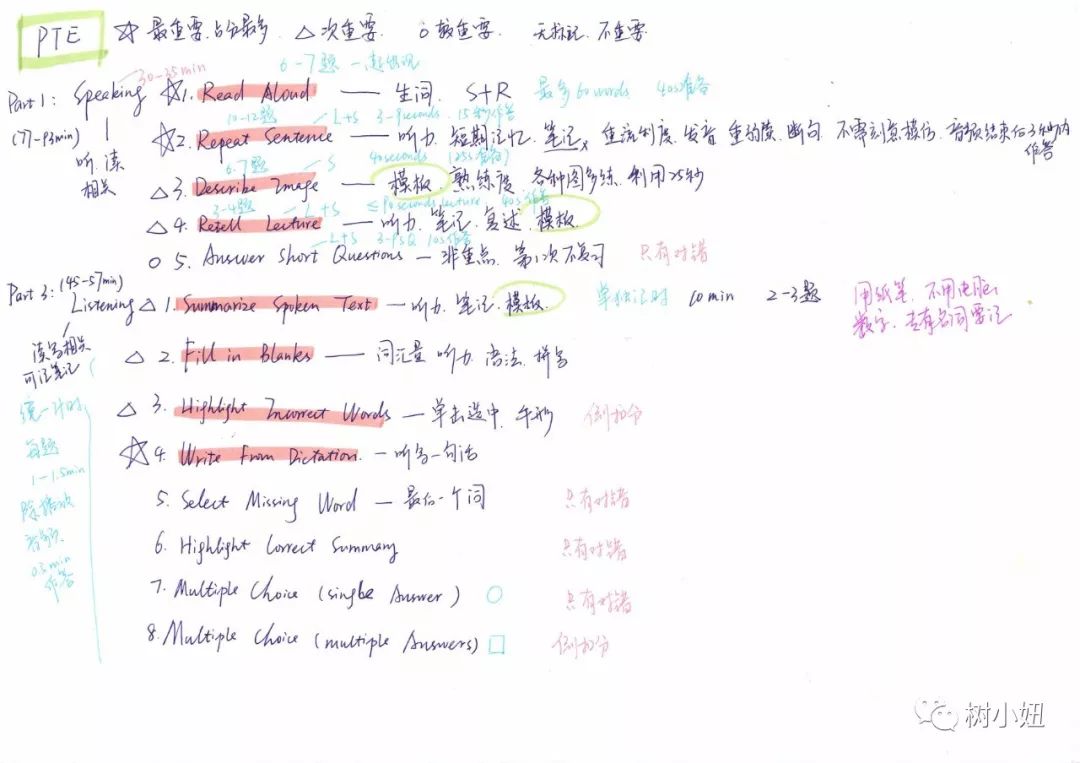 PTE ☆ 最重要.占分最多. △ 次重要. ○ 较重要. 无标记.不重要
30-35min 6-7题 一起出现
Part 1: Speaking ☆1. Read Aloud — 生词. S+R 最多60words 40s准备
10-12题 L+S 3-9seconds. 15秒作答
(77-93min) ☆2. Repeat Sentence — 听力.短期记忆.笔记x 重流利度.发音.重韵律.断句.不需刻意模仿.音频结束后3秒内作答
听.读相关
6-7题 S 40seconds (25s准备)
△ 3. Describe Image — 模板.熟练度 各种图多练.利用25秒
3-4题 L+S ≤90seconds lecture. 40s作答
△ 4. Retell Lecture — 听力.笔记.复述.模板
L+S 3-9s Q 10s作答
○ 5. Answer Short Questions — 非重点.第1次不复习 只有对错
Part 3: (45-57min) Listening △ 1. Summarize Spoken Text — 听力.笔记.模板. 单独计时 10min 2-3题 用纸笔.不用电脑
数字.专有名词要记
读写相关
可记笔记
△ 2. Fill in Blanks — 词汇量 听力.语法.拼写
统一计时
每题
1-1.5min
除播放
音频
0.5min
作答
△ 3. Highlight Incorrect Words — 单击选中. 倒扣分
☆4. Write From Dictation. — 听写一句话
5. Select Missing Word — 最后一个词 只有对错
6. Highlight Correct Summary 只有对错
7. Multiple Choice (single Answer) ○ 只有对错
8. Multiple Choice (multiple Answers) □ 倒扣分
树小妞